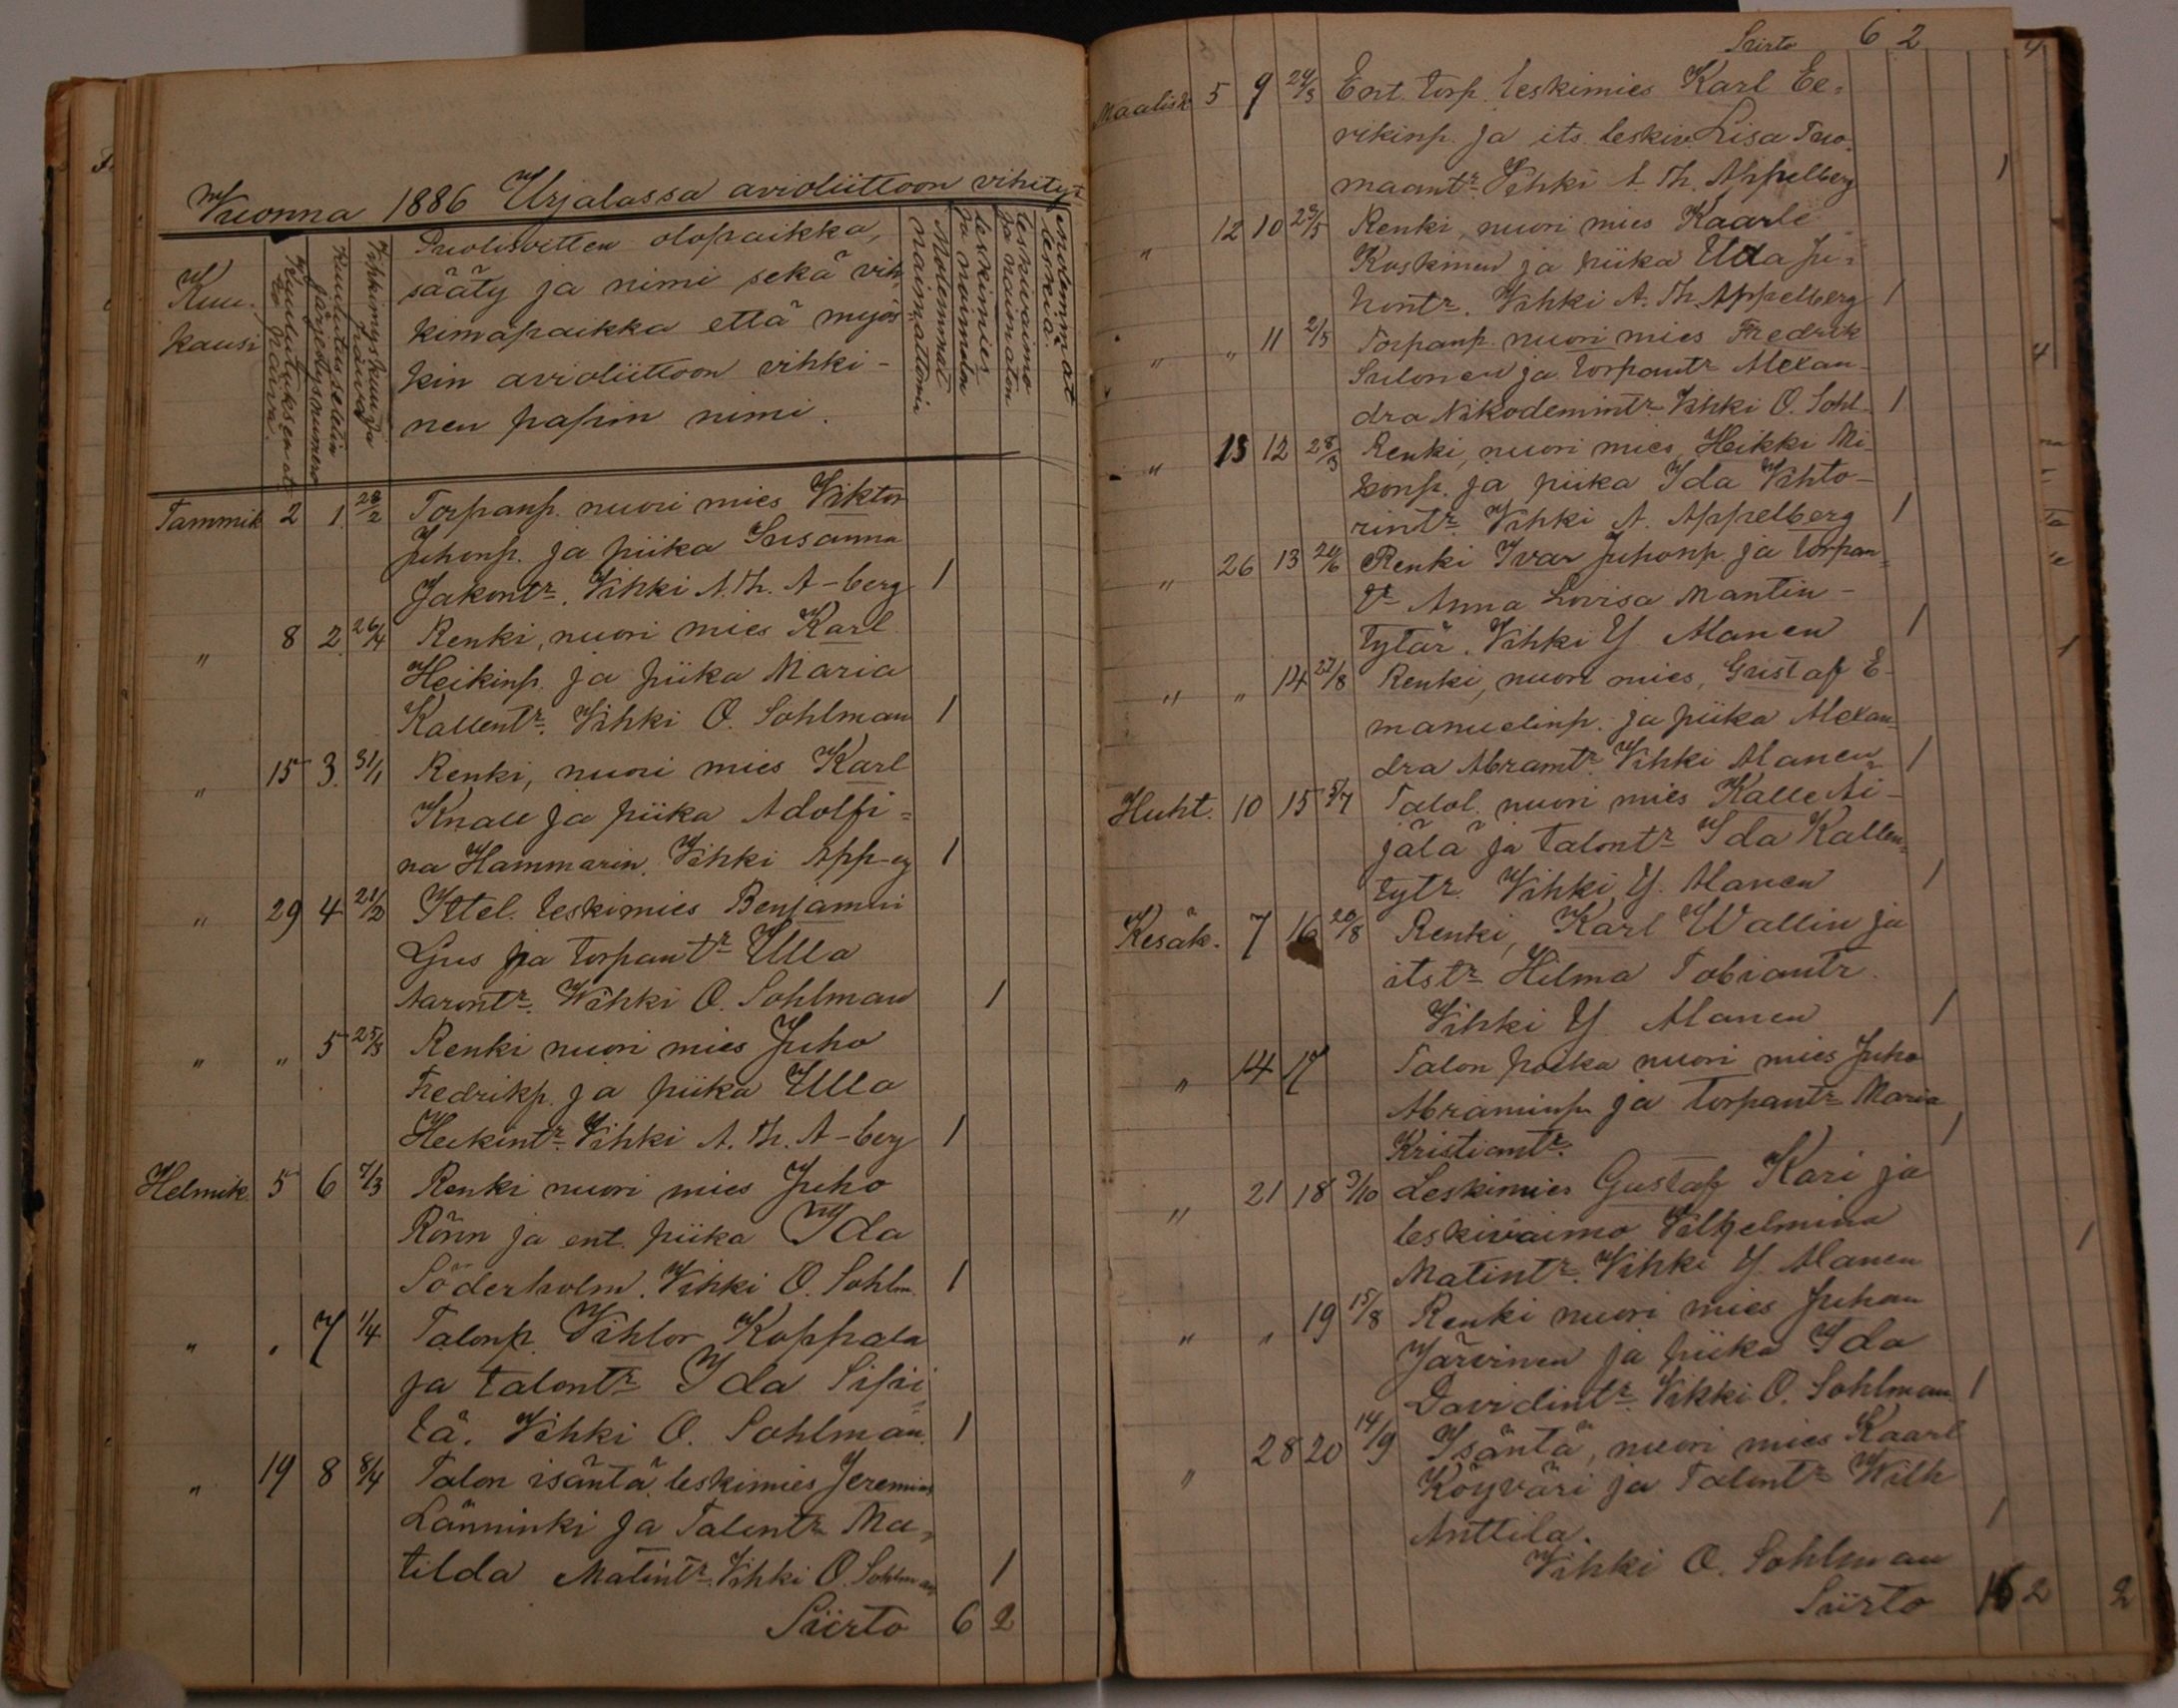 Vuonna 1886 Urjalassa avioliittoon vihityt
Kuu-
kausi
Kuulutuksen al-
ko päivä.
Kuulutus setelin
järjestysnumero
Vihkimyskuu ja
päivä
Puolisoitten olopaikka,
sääty ja nimi sekä vih-
kimäpaikka että myös
kin avioliittoon vihki-
nen papin nimi.
Molemmat
naimattomia
Leskimies
ja naimaton
Leskivaimo
ja naimaton
Molemmat
leskiä.
Tammik 2 1. 28/2 Torpanp. nuori mies Viktor
Juhonp. ja piika Susanna
Jakontr. Vihki A. Th. A-berg 1
" 8 2. 26/4 Renki, nuori mies Karl
Heikinp. ja piika Maria
Kallentr. Vihki O. Sohlman 1
" 15 3. 31/1 Renki, nuori mies Karl
Knall ja piika Adolfi=
na Hammarin. Vihki App-g 1
" 29 4 21/2 Ittel. leskimies Benjamin
Ljus ja torpantr Ulla
Aarontr. Vihki O. Sohlman 1
" " 5 25/3 Renki nuori mies Juho
Fredrikp. ja piika Ulla
Heikintr. Vihki A. Th. A-berg 1
Helmik. 5 6 7/3 Renki nuori mies Juho
Rönn ja ent. piika Ida
Söderholm. Vihki O. Sohlm. 1
" " 7 1/4 Talonp. Vihtor Koppala
ja talontr Ida Sipi=
lä. Vihki O. Sohlman. 1
" 19 8 8/4 Talon isäntä leskimies Jeremias
Länninki ja Talontr Ma=
tilda Matintr. Vihki O. Sohlman 1
Siirto 6 2
Siirto 6 2
Maalisk 5 9 24/3 Ent. torp. leskimies Karl Ee=
rikinp. ja its. leskiv. Lisa Tuo-
maantr. Vihki A. Th. Appelberg 1
" 12 10 23/5 Renki, nuori mies Kaarle
Koskinen ja piika Uda Ju=
hontr. Vihki A. Th. Appelberg 1
" " 11 2/5 Torpanp. nuori mies Fredrik
Sulonen ja torpantr Alexan-
dra Nikodemintr Vihki O. Sohl. 1
" 13 12 28/3 Renki, nuori mies, Heikki Mi-
konp. ja piika Ida Vihto-
rintr. Vihki A. Appelberg 1
" 26 13 24/6 Renki Ivar Juhonp. ja torpan=
tr Anna Lovisa Mantin-
tytär. Vihki Y. Alanen 1
" " 14 22/8 Renki, nuori mies, Gustaf E-
manuelinp. ja piika Alexan=
dra Abramtr. Vihki Alanen 1
Huht. 10 15 5/7 Talol. nuori mies Kalle Ai-
jälä ja talontr Ida Kallen=
tytr. Vihki Y. Alanen 1
Kesäk. 7 16 20/8 Renki, Karl Wallin ja
itstr Hilma Tobiantr.
Vihki Y. Alanen 1
" 14 17 Talon poika nuori mies Juho
Abraminp. ja torpantr Maria
Kristiantr. 1
" 21 18 3/10 Leskimies Gustaf Kari ja
leskivaimo Vilhelmina
Matintr. Vihki Y. Alanen 1
" " 19 15/8 Renki nuori mies Juhan
Järvinen ja piika Ida
Davidintr. Vihki O. Sohlman 1
" 28 20 14/9 Isäntä, nuori mies Kaarl
Köyväri ja Talontr Wilh
Anttila. 1
Vihki O. Sohlman
Siirto 16 2 2